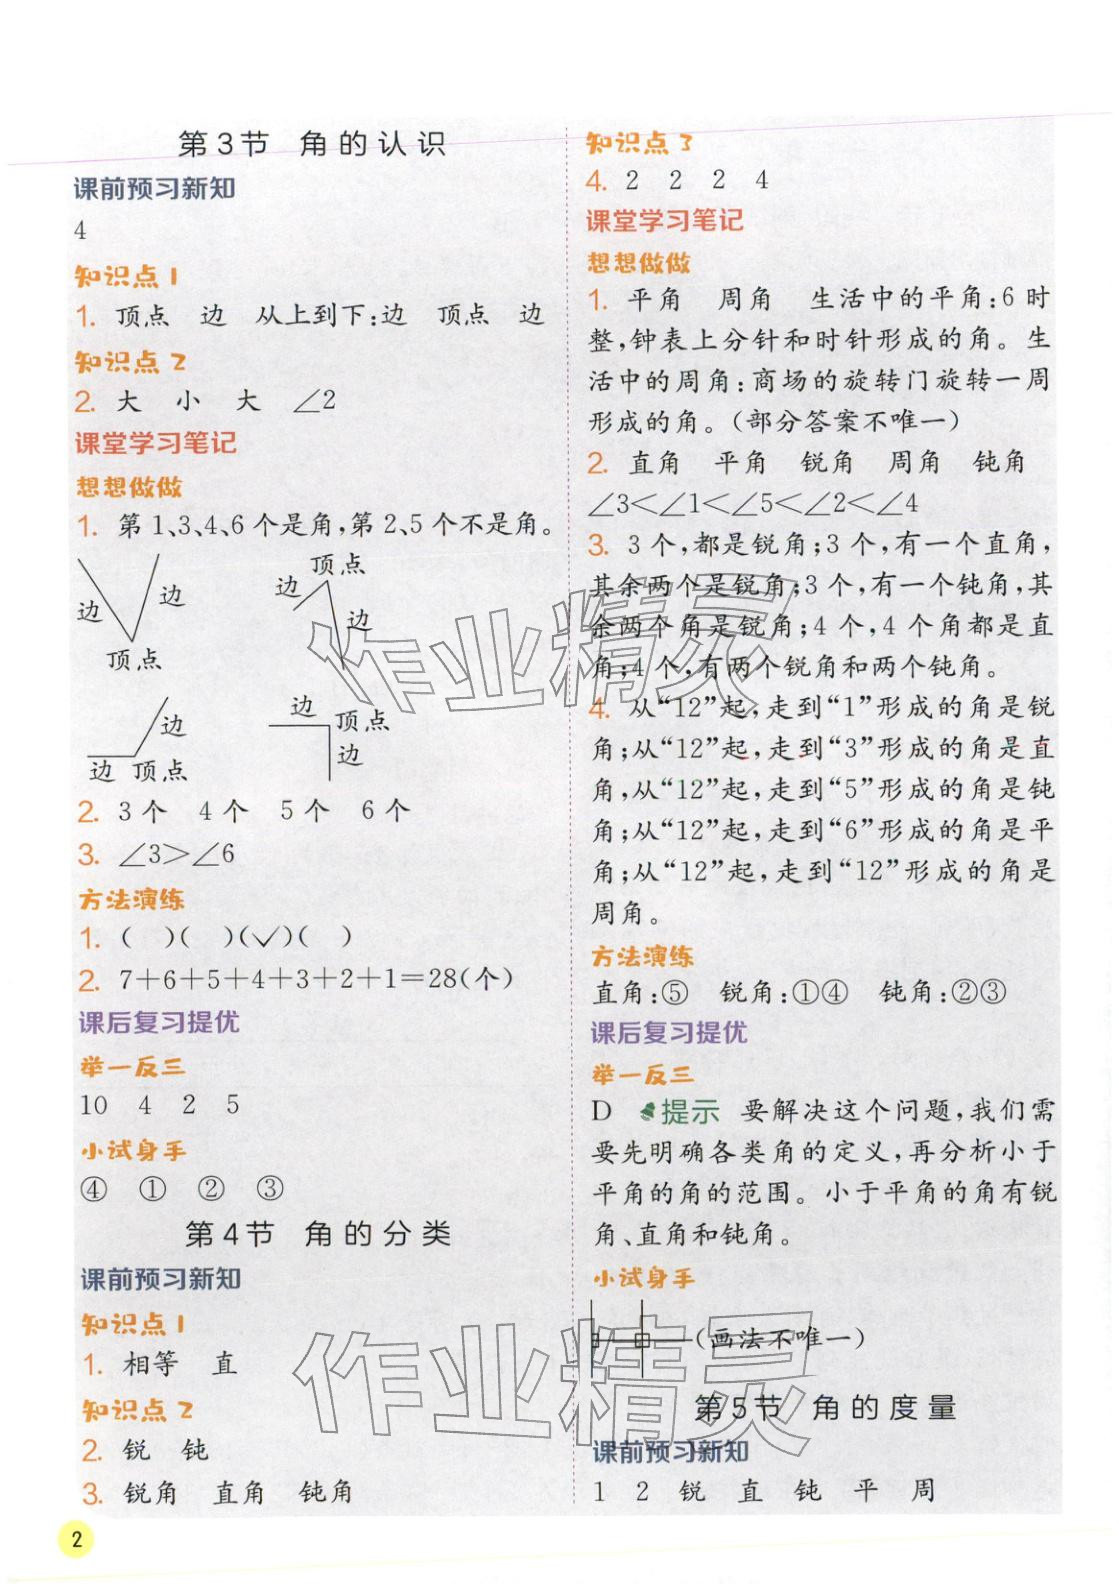 第3节 角的认识
课前预习新知
4
知识点1
1. 顶点 边 从上到下:边 顶点 边
知识点2
2. 大 小 大 ∠2
课堂学习笔记
想想做做
1. 第1、3、4、6个是角,第2、5个不是角。
边 边 顶点
顶点 边 边
边 边 顶点
边 顶点 边
2. 3个 4个 5个 6个
3. ∠3>∠6
方法演练
1. ( )( )(✓)( )
2. 7+6+5+4+3+2+1=28(个)
课后复习提优
举一反三
10 4 2 5
小试身手
④ ① ② ③
第4节 角的分类
课前预习新知
知识点1
1. 相等 直
知识点2
2. 锐 钝
3. 锐角 直角 钝角
知识点3
4. 2 2 2 4
课堂学习笔记
想想做做
1. 平角 周角 生活中的平角:6时
整,钟表上分针和时针形成的角。生
活中的周角:商场的旋转门旋转一周
形成的角。(部分答案不唯一)
2. 直角 平角 锐角 周角 钝角
∠3<∠1<∠5<∠2<∠4
3. 3个,都是锐角;3个,有一个直角,
其余两个是锐角;3个,有一个钝角,其
余两个角是锐角;4个,4个角都是直
角;4个,有两个锐角和两个钝角。
4. 从“12”起,走到“1”形成的角是锐
角;从“12”起,走到“3”形成的角是直
角,从“12”起,走到“5”形成的角是钝
角;从“12”起,走到“6”形成的角是平
角;从“12”起,走到“12”形成的角是
周角。
方法演练
直角:⑤ 锐角:①④ 钝角:②③
课后复习提优
举一反三
D 提示 要解决这个问题,我们需
要先明确各类角的定义,再分析小于
平角的角的范围。小于平角的角有锐
角、直角和钝角。
小试身手
(画法不唯一)
第5节 角的度量
课前预习新知
1 2 锐 直 钝 平 周
2
作业精灵
作业精灵